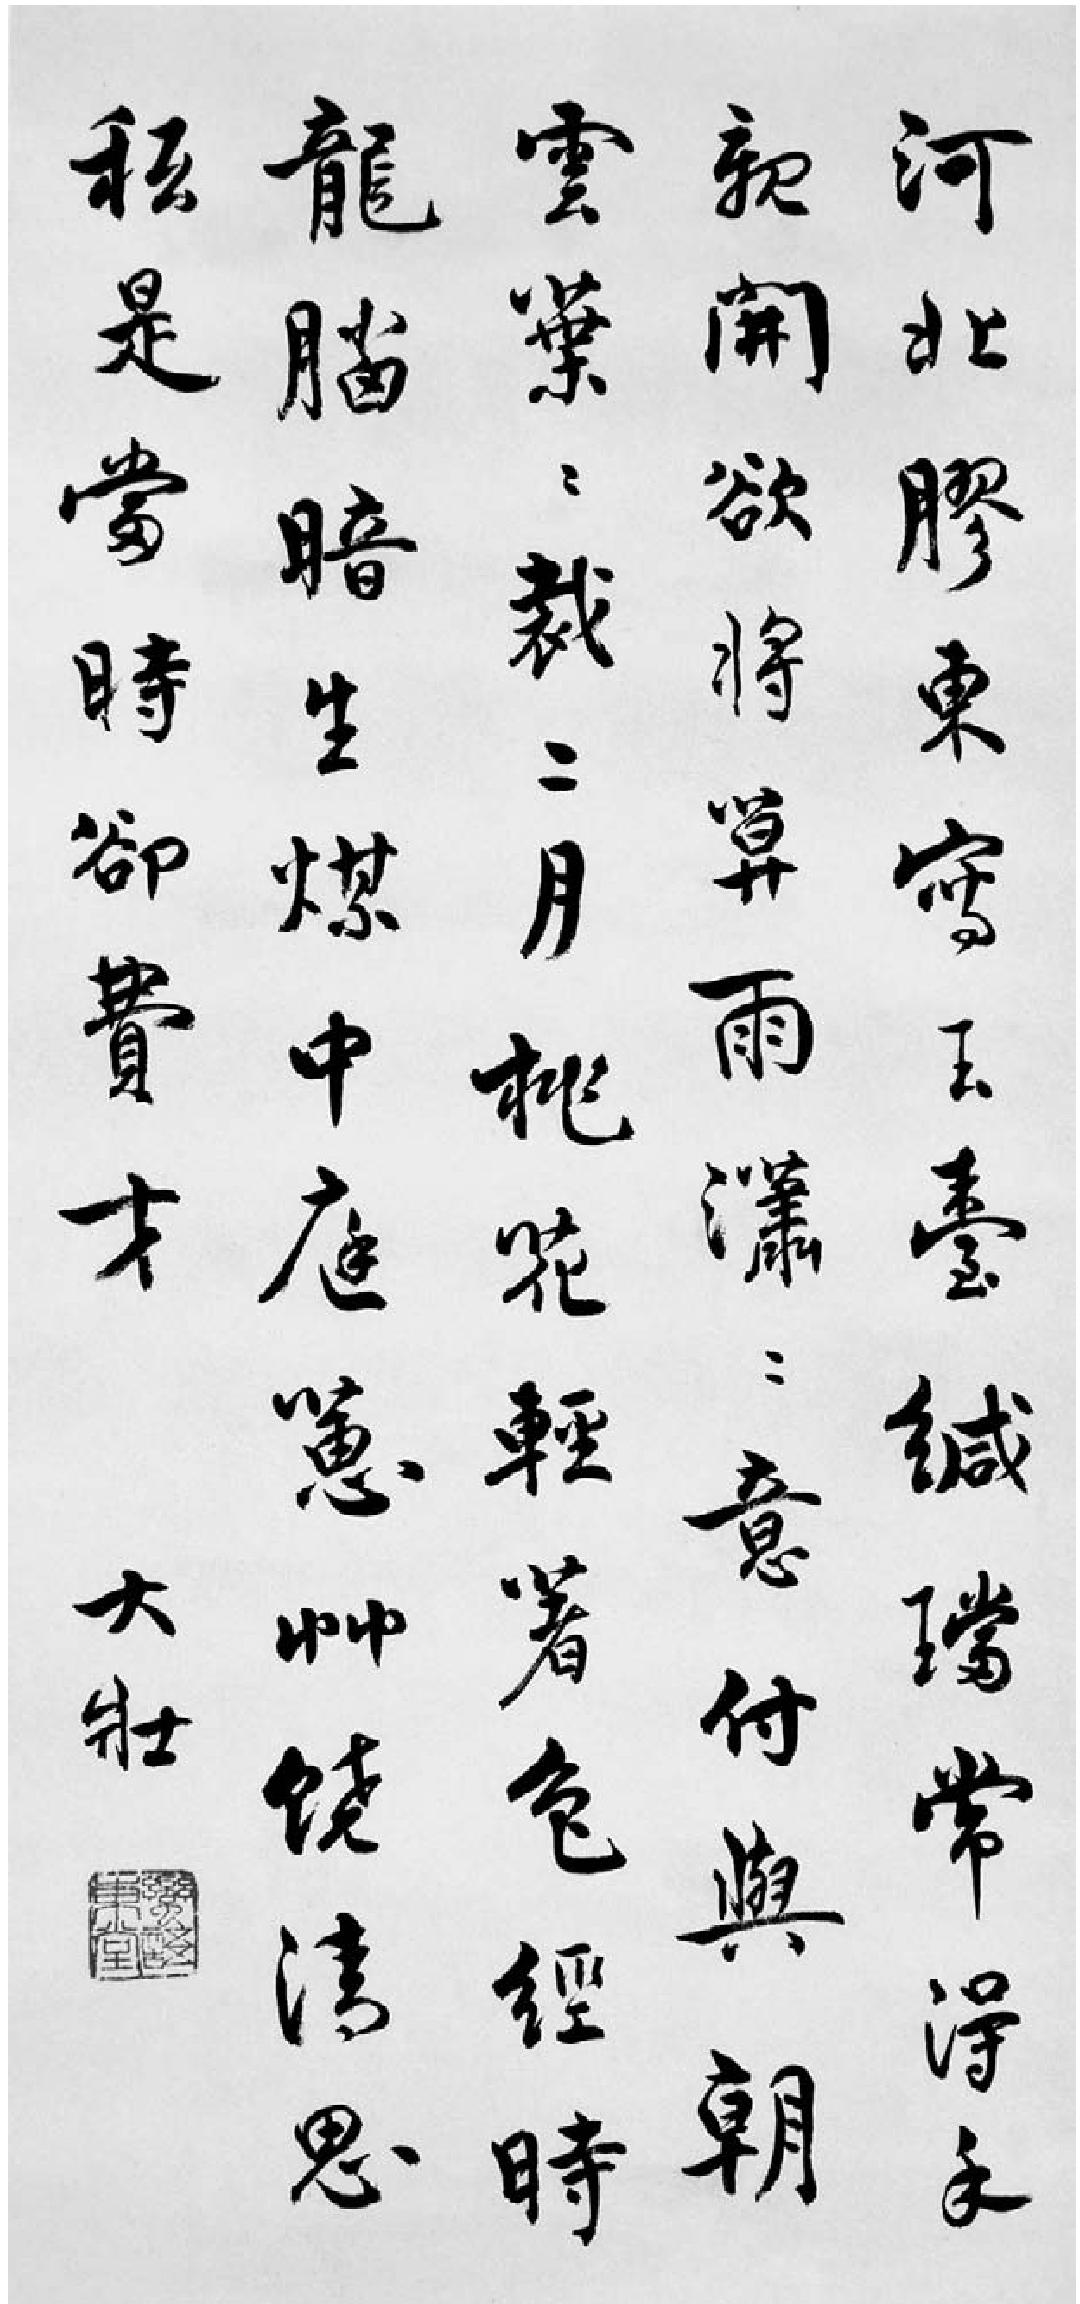 河北膠東寫玉臺緘璫常得手
親開欲將算雨瀟〻意付與朝
雲葉〻裁二月桃花輕著色經時
龍腦暗生煤中庭蕙艸饒清思
秖是當時卻費才
大壯